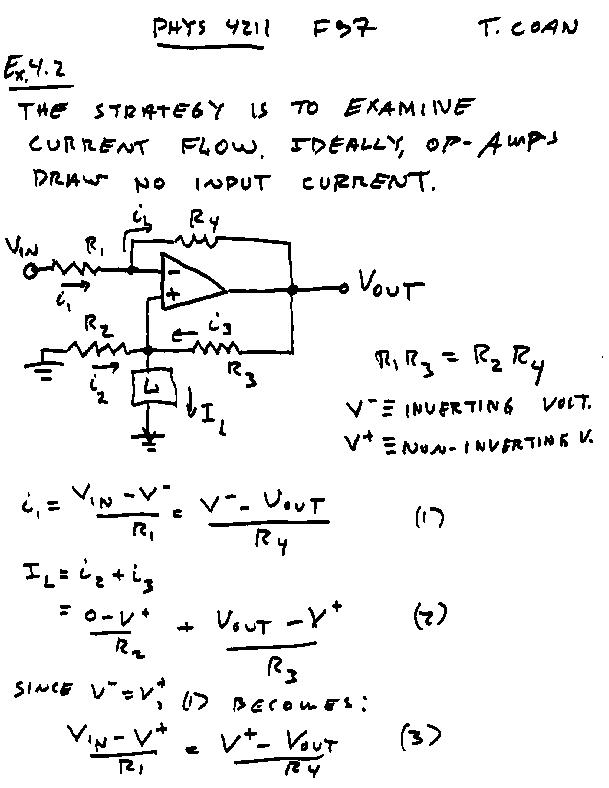 PHYS 4211 F97 T. COAN
Ex. 4.2
THE STRATEGY IS TO EXAMINE
CURRENT FLOW. IDEALLY, OP-AMPS
DRAW NO INPUT CURRENT.
i₄ R₄
V_IN R₁
i₁
−
+
V_OUT
R₂ i₃
i₂ R₃
L
I_L
R₁R₃ = R₂R₄
V⁻ ≡ INVERTING VOLT.
V⁺ ≡ NON-INVERTING V.
i₁ = (V_IN − V⁻)/R₁ = (V⁻ − V_OUT)/R₄ (1)
I_L = i₂ + i₃
= (0 − V⁺)/R₂ + (V_OUT − V⁺)/R₃ (2)
SINCE V⁻ = V⁺, (1) BECOMES:
(V_IN − V⁺)/R₁ = (V⁺ − V_OUT)/R₄ (3)